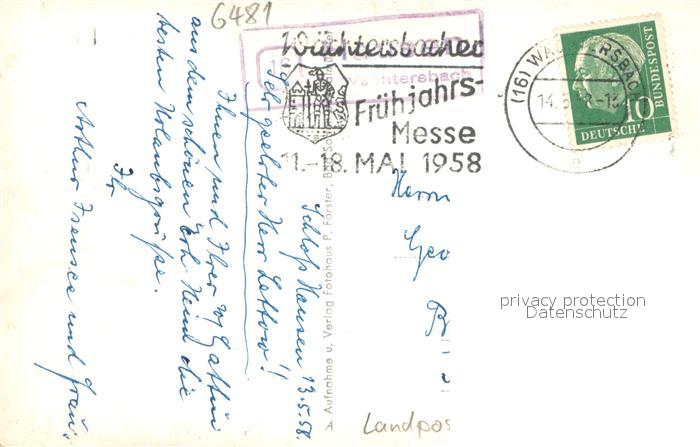 6481
Wächtersbacher
Frühjahrs-
Messe
11.-18. MAI 1958
(16)
Wächtersbach
(16) WÄCHTERSBACH
14.5.58-1
e
10
DEUTSCHE
BUNDESPOST
Schloß Hausen 13.5.58.
Sehr geehrter Herr Lettow!
Ihnen und Ihrer w/ Gattin
aus dem schönen Erh. Heim die
besten Urlaubsgrüße.
Ihr
Arthur und Frau.
A Aufnahme u. Verlag Fotohaus P. Förster, Bad
Herrn
Geo
Landpos
privacy protection
Datenschutz